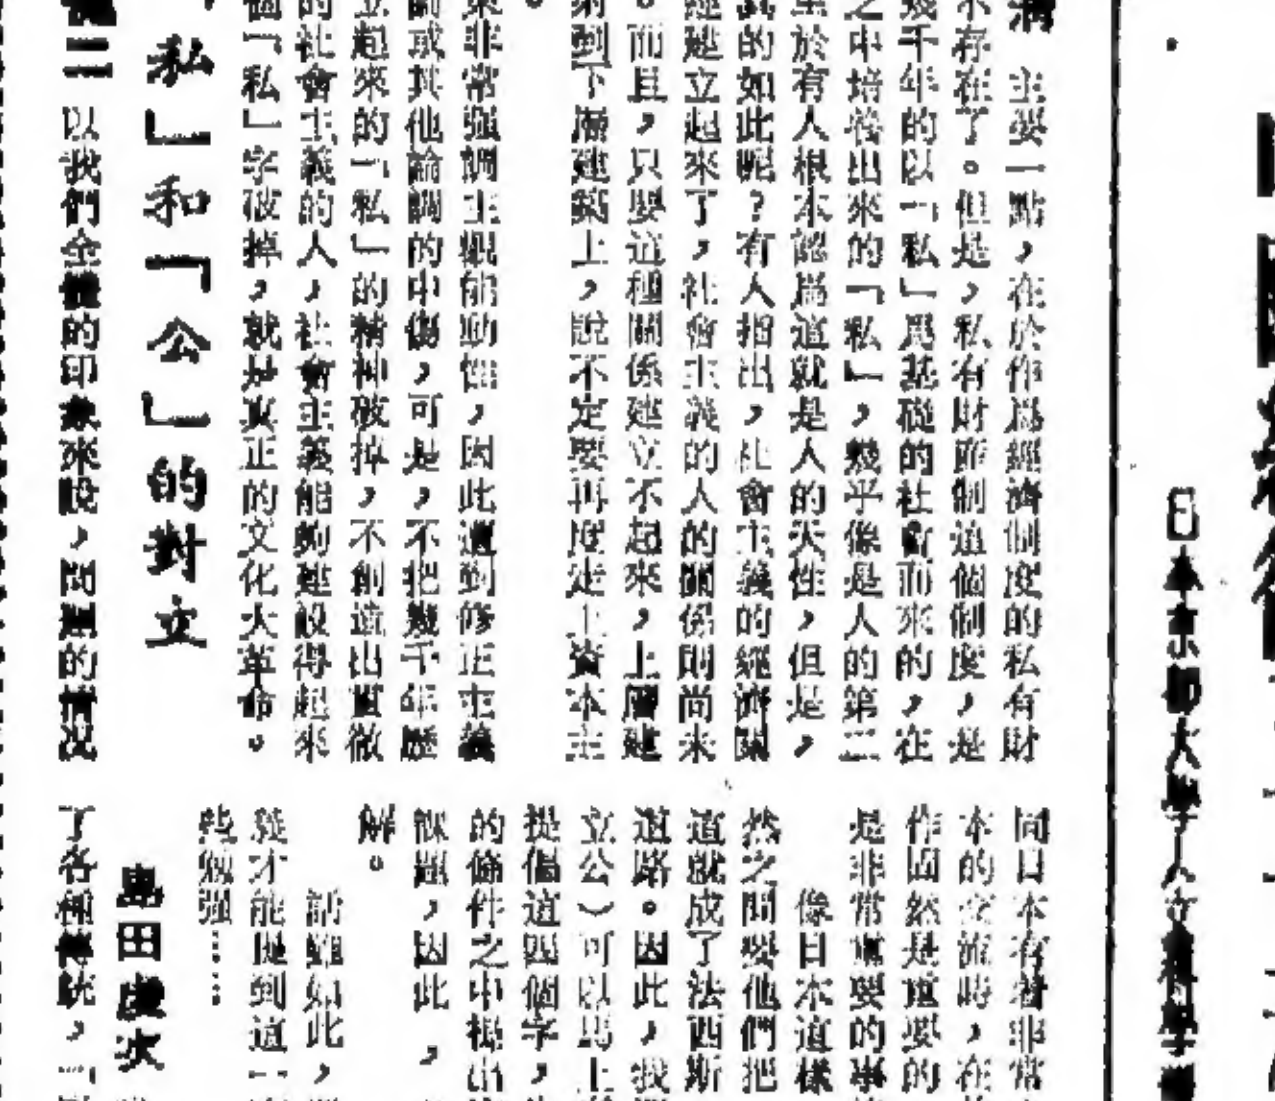 日本京都大學人文科學
滿 主要一點，在於作爲經濟制度的私有財
不存在了。但是，私有財產制這個制度，是
幾千年的以「私」爲基礎的社會而來的，在
之中培養出來的「私」，幾乎像是人的第二
至於有人根本認爲這就是人的天性，但是，
眞的如此呢？有人指出，社會主義的經濟關
經建立起來了，社會主義的人的關係則尚未
。而且，只要這種關係建立不起來，上層建
射到下層建築上，說不定要再度走上資本主
。
東非常强調主觀能動性，因此遭到修正主義
論或其他論調的中傷，可是，不把幾千年歷
立起來的「私」的精神破掉，不創造出貫徹
的社會主義的人，社會主義能夠建設得起來
個「私」字破掉，就是眞正的文化大革命。
私」和「公」的對立
二 以我們全體的印象來說，問題的情況
同日本有着非常
本的交流時，在
作固然是重要的
是非常重要的事
像日本這樣
然之間要他們把
道就成了法西斯
道路。因此，我
立公）可以馬上
提倡這四個字，
的條件之中提出
課題，因此，
解。
話雖如此，
幾才能提到這一
些勉强……
島田虔次
了各種傳統，「